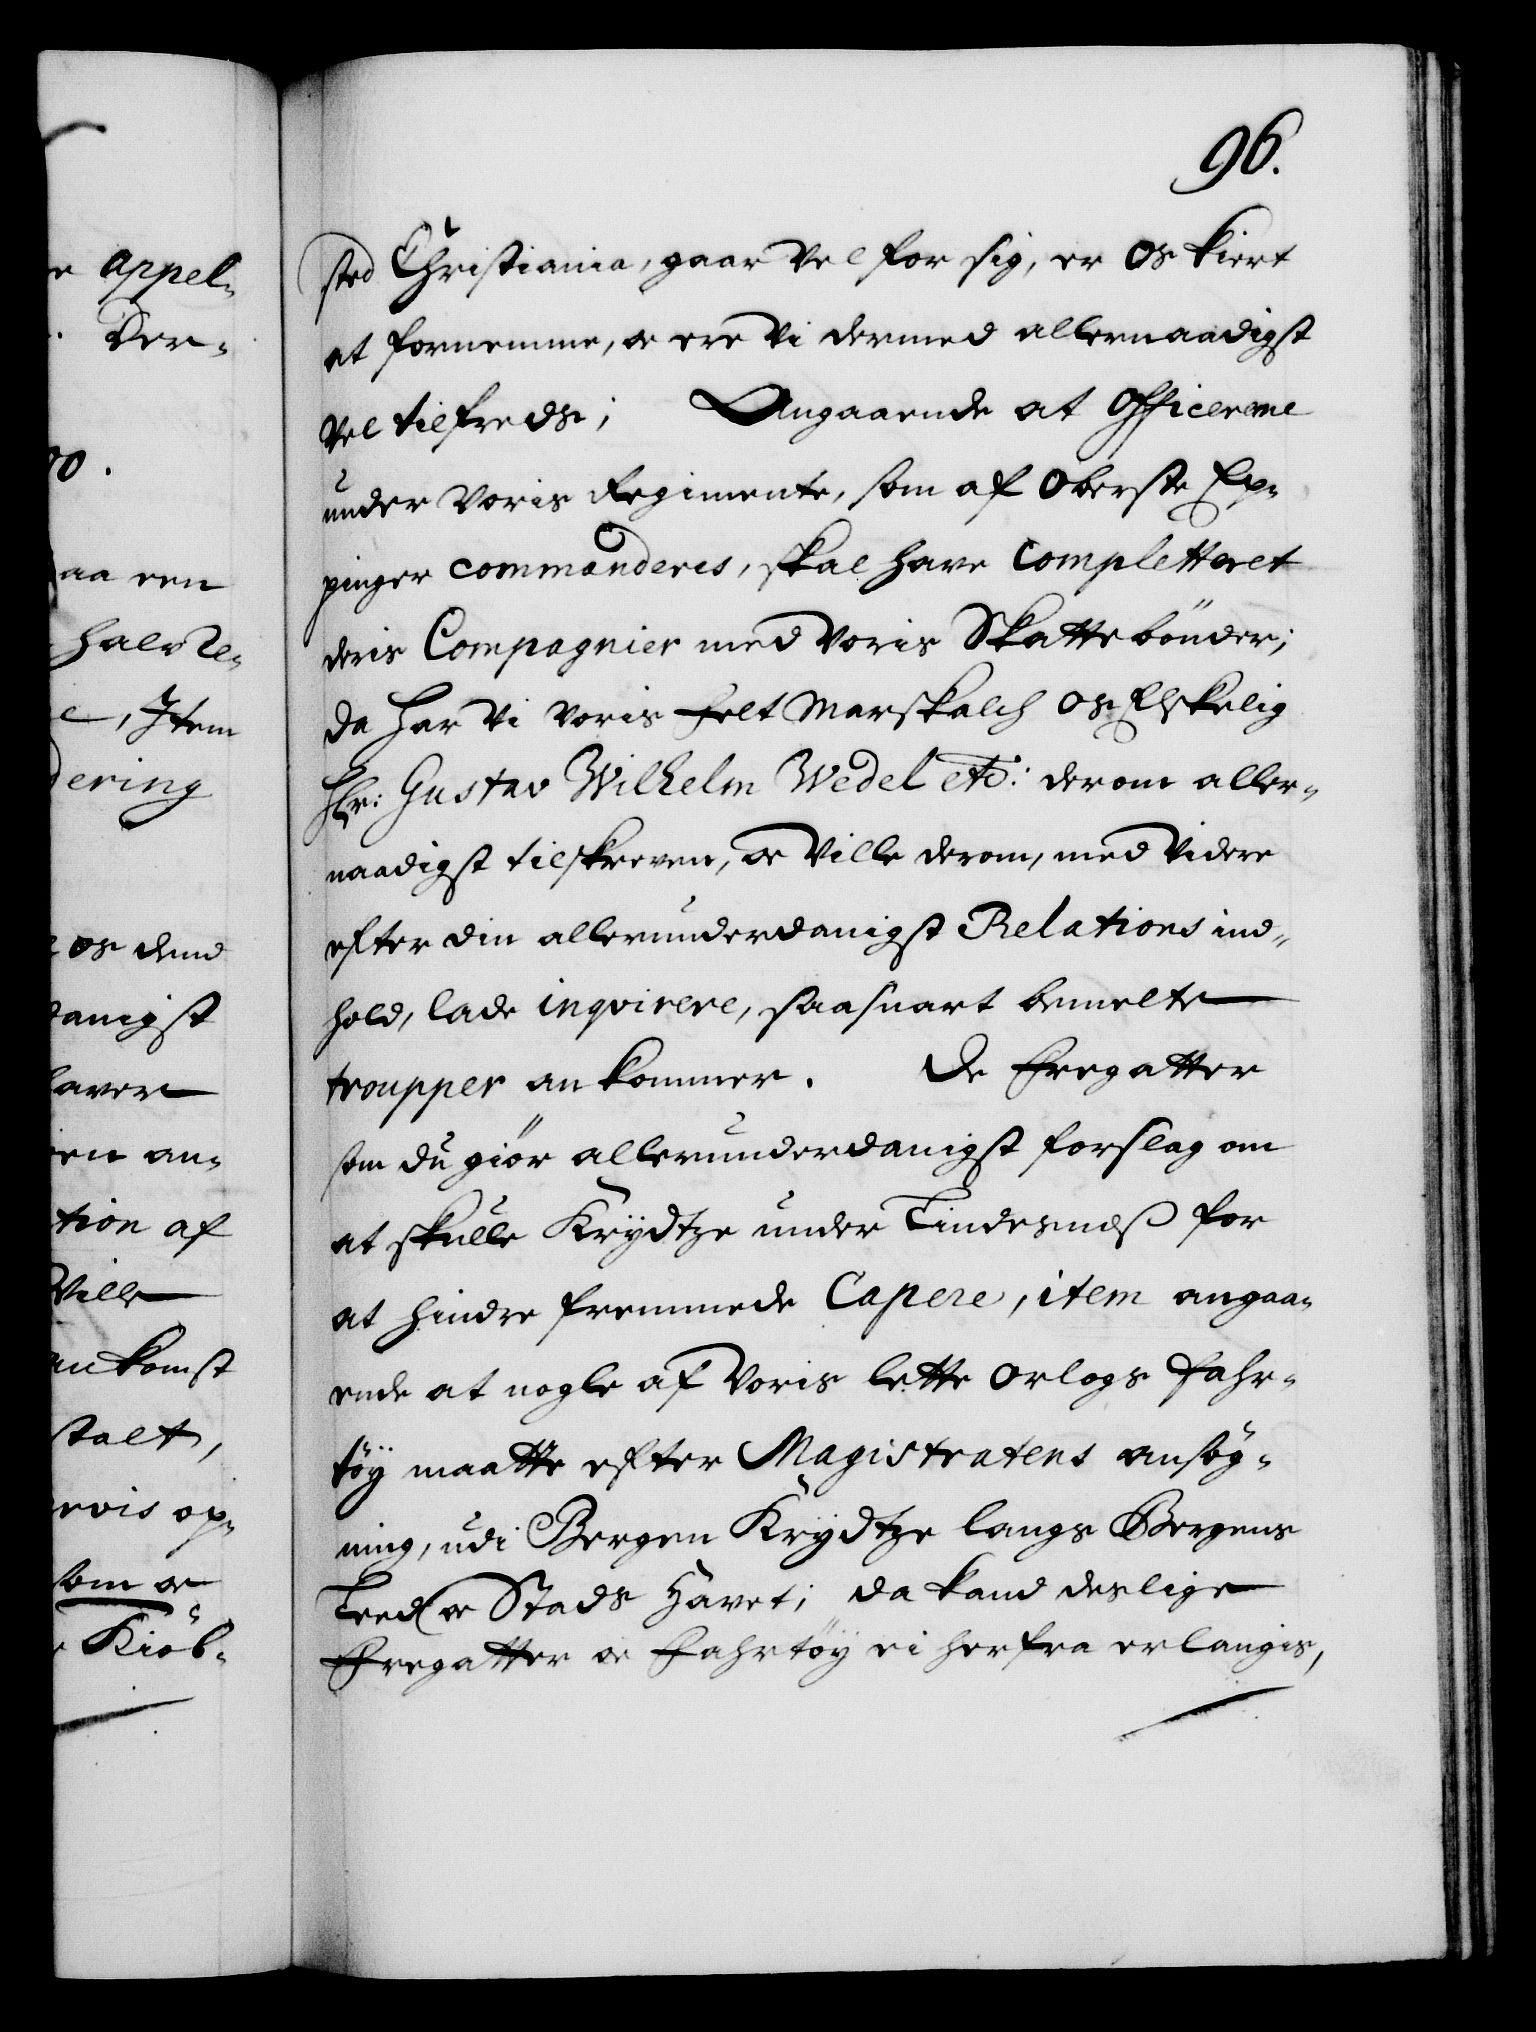 96.
sted Christiania, gaar vel for sig, er os kiert
at fornemme, oc ere Vi dermed allernaadigst
vel tilfreds; Angaaende at Officererne
under Voris Regimente, som af Oberste Ep-
pinger commanderes, skal have completteret
deris Compagnier med Voris Skattebönder;
da har Vi Voris Felt Marskalch os Elskelig
Hr: Gustav Wilhelm Wedel etc: derom aller-
naadigst tilskreven, oc Ville derom, med Videre
efter din allerunderdanigst Relations ind-
hold, lade inqvirere, saasnart bemelte
troupper ankommer. De Fregatter
som du giör allerunderdanigst forslag om
at skulle Krydtze under Lindesneß for
at hindre fremmede Capere, item angaa-
ende at nogle af Voris lette Orlogs Fahr-
töy maatte efter Magistratens ansög-
ning, udi Bergen Krydtze langs Bergens
Leed oc Stads Havet; da kand deslige
Fregatter oc Fahrtöy ei herfra erlangis,
appel-
Der-
aa een
Item
dering
os dend
danigst
en an-
tion af
Ville
ankomst
stalt,
revis op-
som oc
Kiöb-